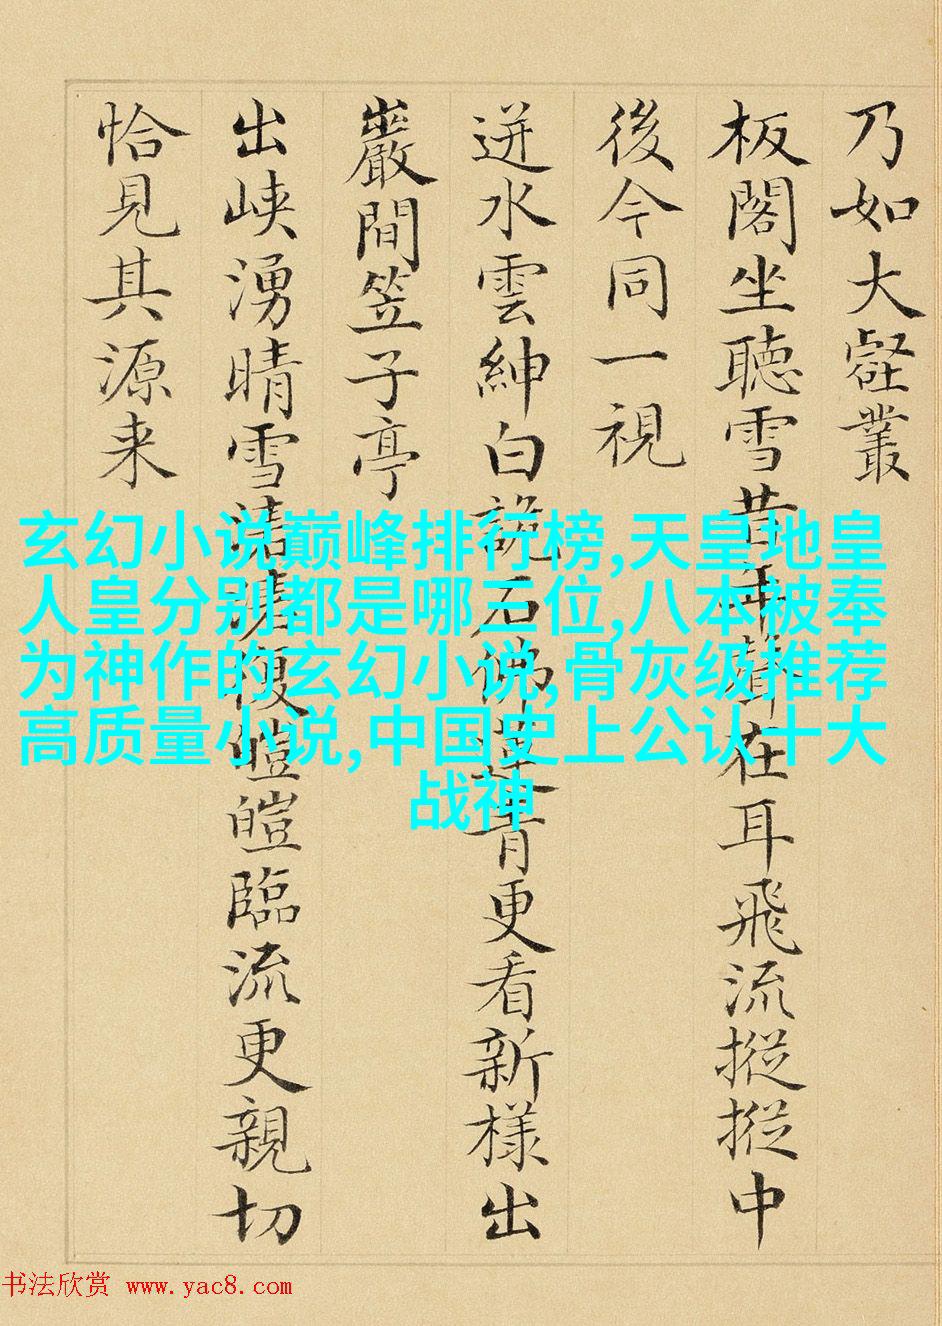 乃如大壑叢
板閣坐聽雪昔年聲在耳飛流摐摐中
後今同一視
迸水雲紳白石佛青更看新樣出
巖間笠子亭
出峽湧晴雪復皚皚臨流更親切
恰見其源来
玄幻小说巅峰排行榜,天皇地皇
人皇分别都是哪三位,八本被奉
为神作的玄幻小说,骨灰级推荐
高质量小说,中国史上公认十大
战神
书法欣赏 www.yac8.com